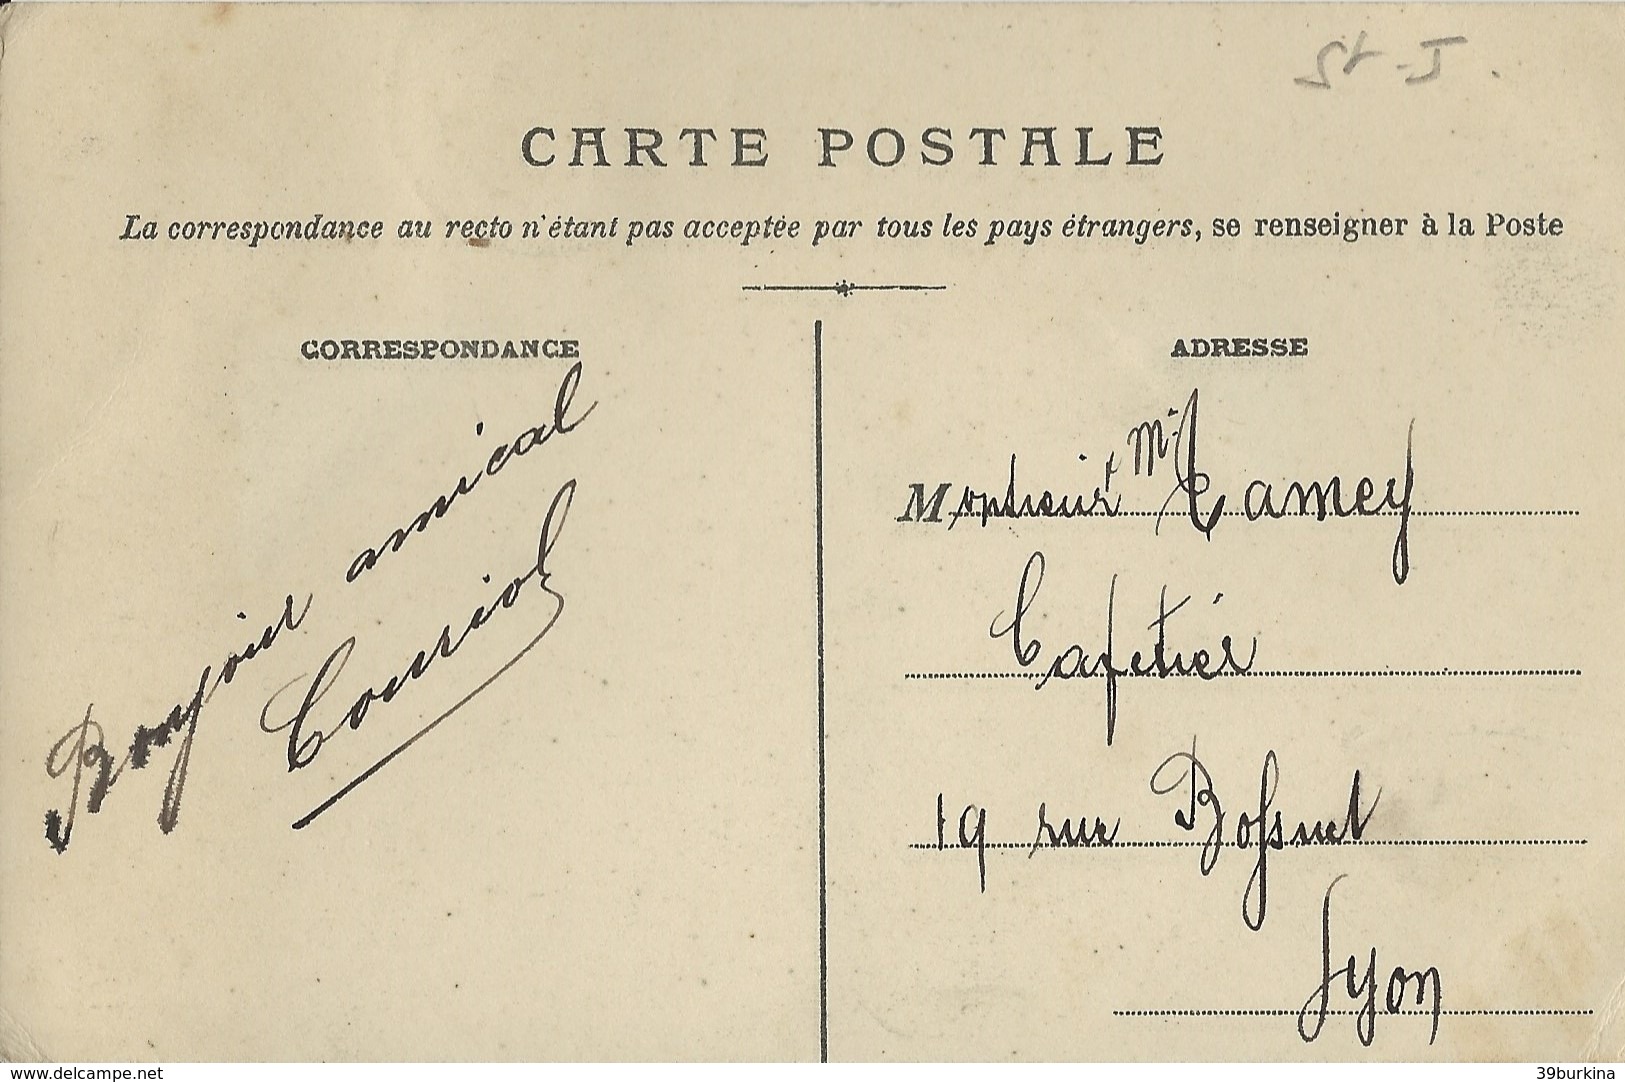 CARTE POSTALE
La correspondance au recto n'étant pas acceptée par tous les pays étrangers, se renseigner à la Poste
CORRESPONDANCE
Bonjour amical
Couriol
ADRESSE
Monsieur Mr Camey
Cafetier
19 rue Bossuet
Lyon
delcampe.net
39burkina